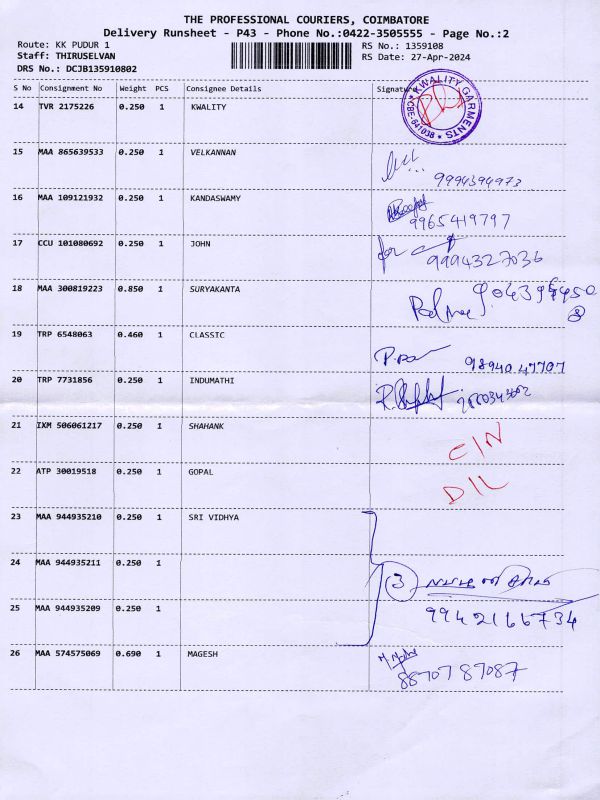 THE PROFESSIONAL COURIERS, COIMBATORE
Delivery Runsheet - P43 - Phone No.:0422-3505555 - Page No.:2
Route: KK PUDUR 1 RS No.: 1359108
Staff: THIRUSELVAN RS Date: 27-Apr-2024
DRS No.: DCJB135910802
S No Consignment No Weight PCS Consignee Details Signature
14 TVR 2175226 0.250 1 KWALITY
KWALITY GARMENTS CBE-641038
15 MAA 865639533 0.250 1 VELKANNAN
9994394973
16 MAA 109121932 0.250 1 KANDASWAMY
9965419797
17 CCU 101080692 0.250 1 JOHN
for
9994327036
18 MAA 300819223 0.850 1 SURYAKANTA
19 TRP 6548063 0.460 1 CLASSIC
98940 47707
20 TRP 7731856 0.250 1 INDUMATHI
21 IXM 506061217 0.250 1 SHAHANK
C/N
22 ATP 30019518 0.250 1 GOPAL
D/L
23 MAA 944935210 0.250 1 SRI VIDHYA
24 MAA 944935211 0.250 1
3
25 MAA 944935209 0.250 1
9942166734
26 MAA 574575069 0.690 1 MAGESH
88707 87087